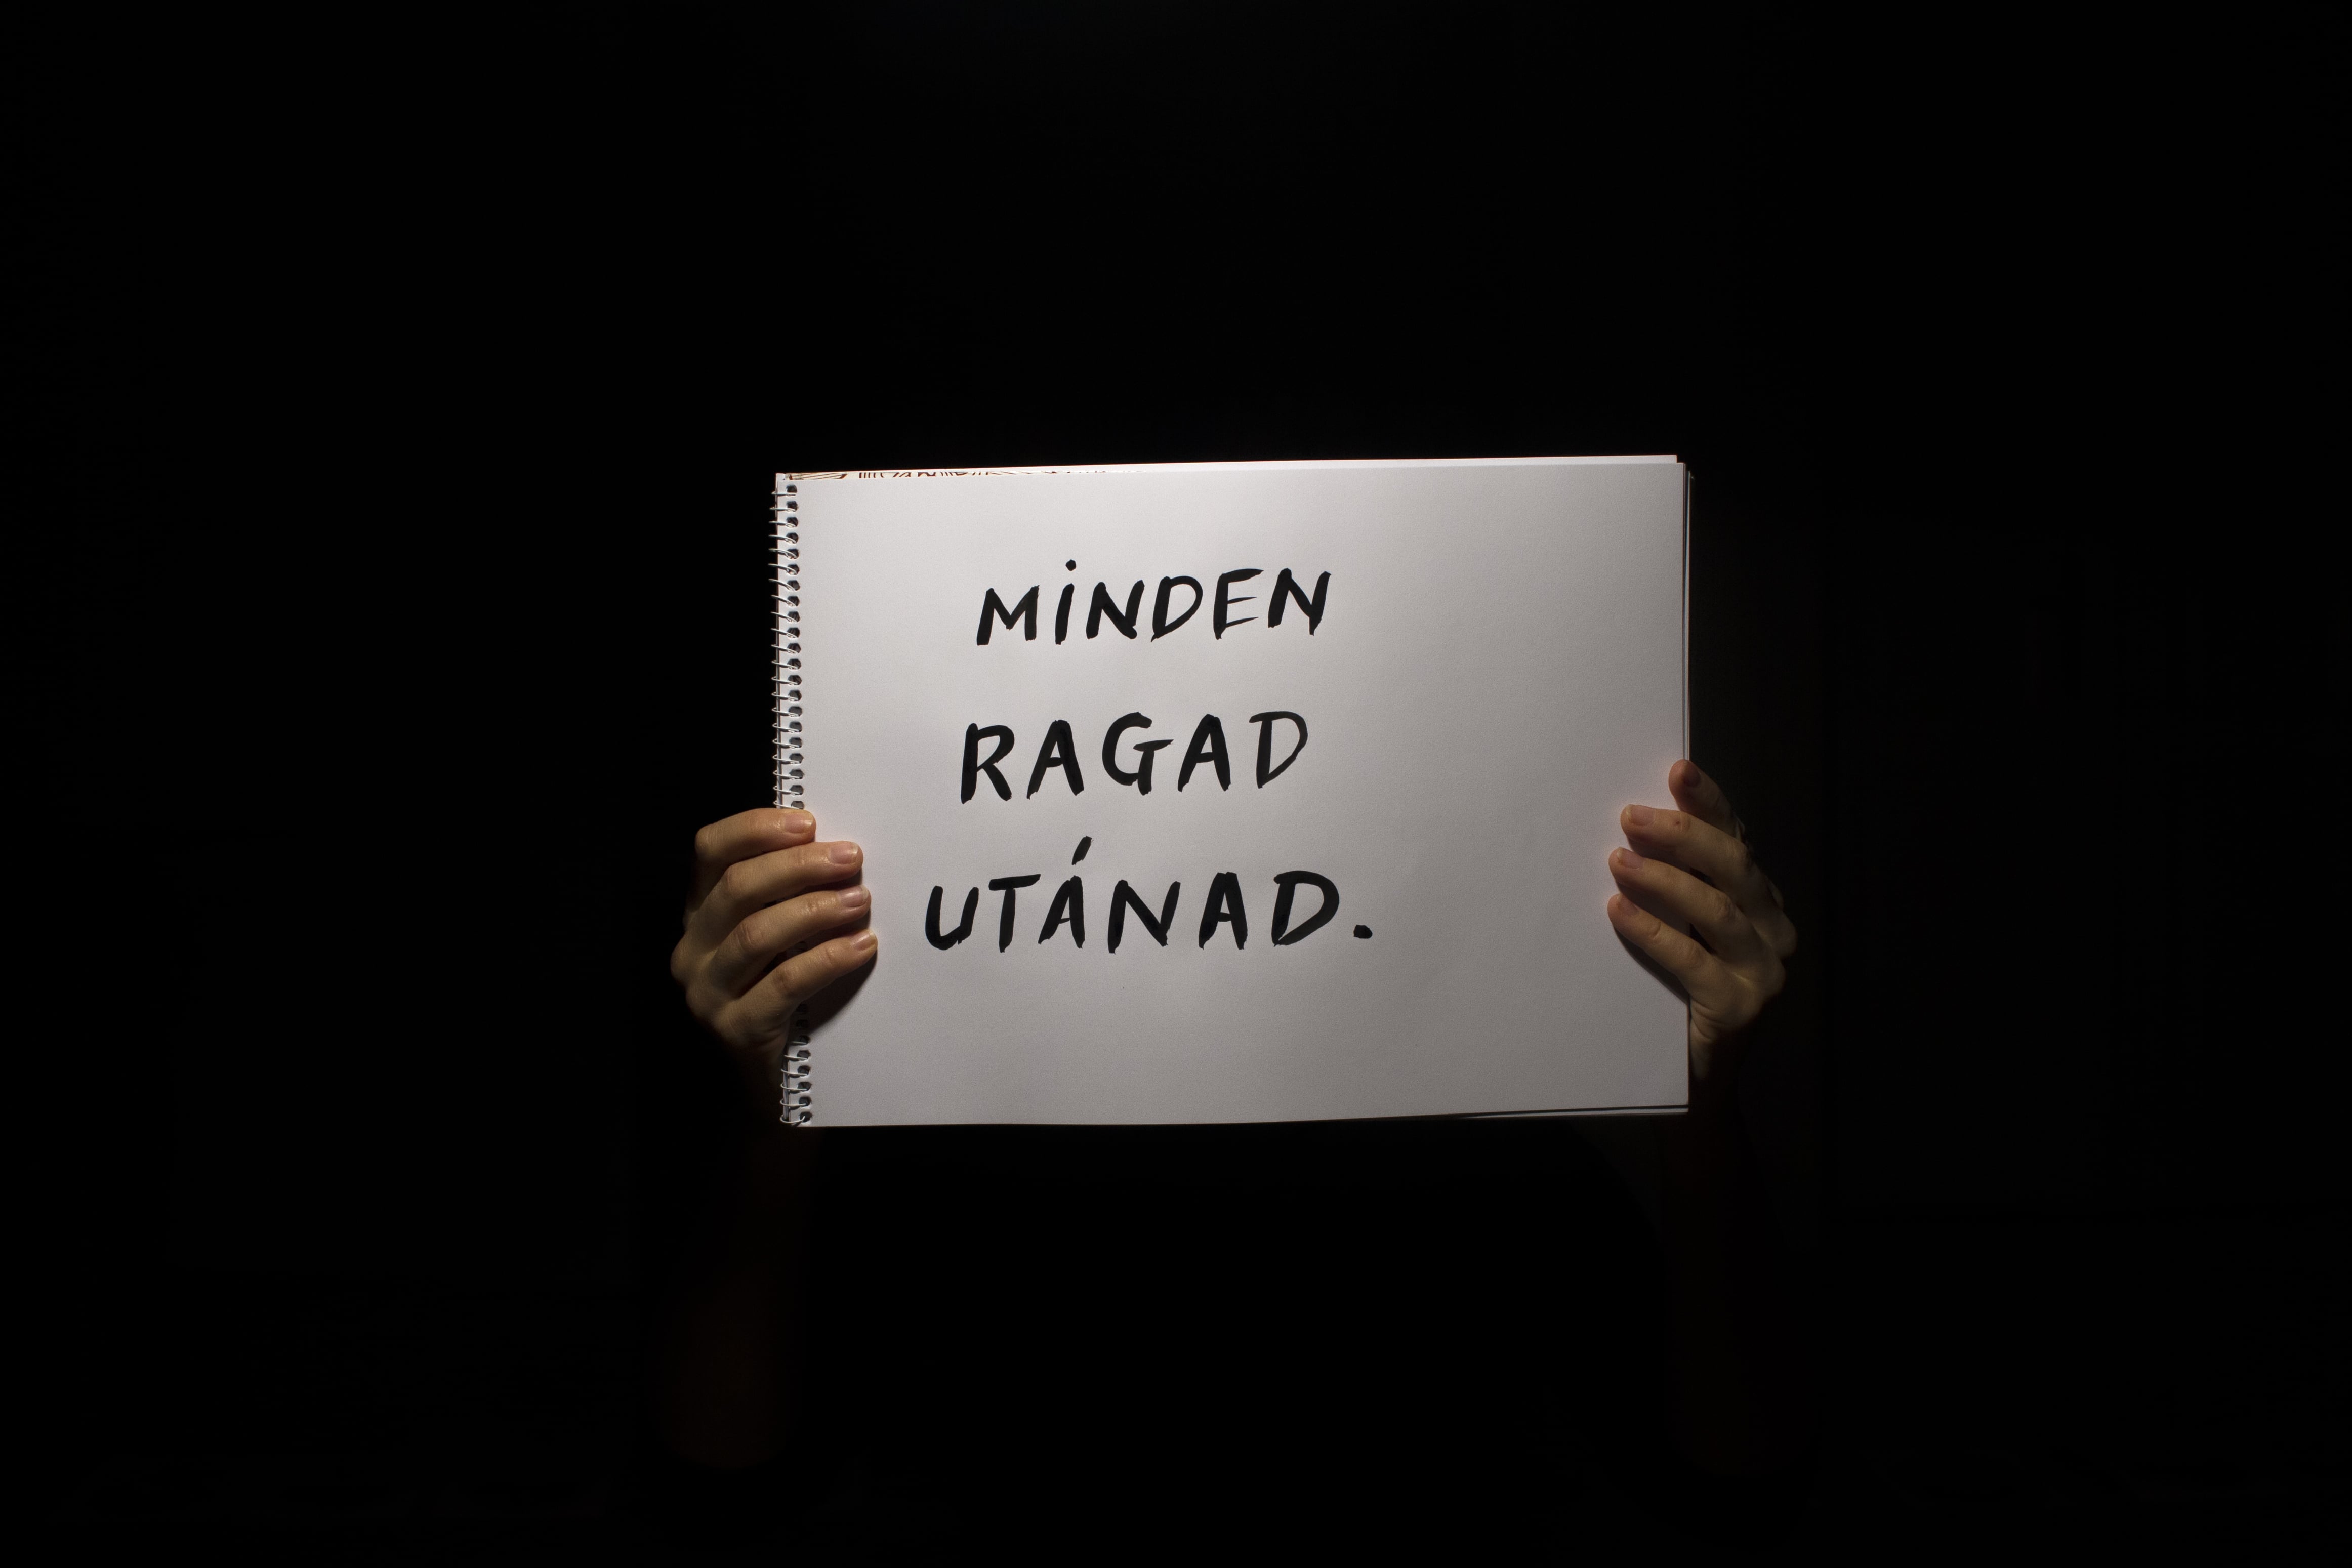 MINDEN
RAGAD
UTÁNAD.